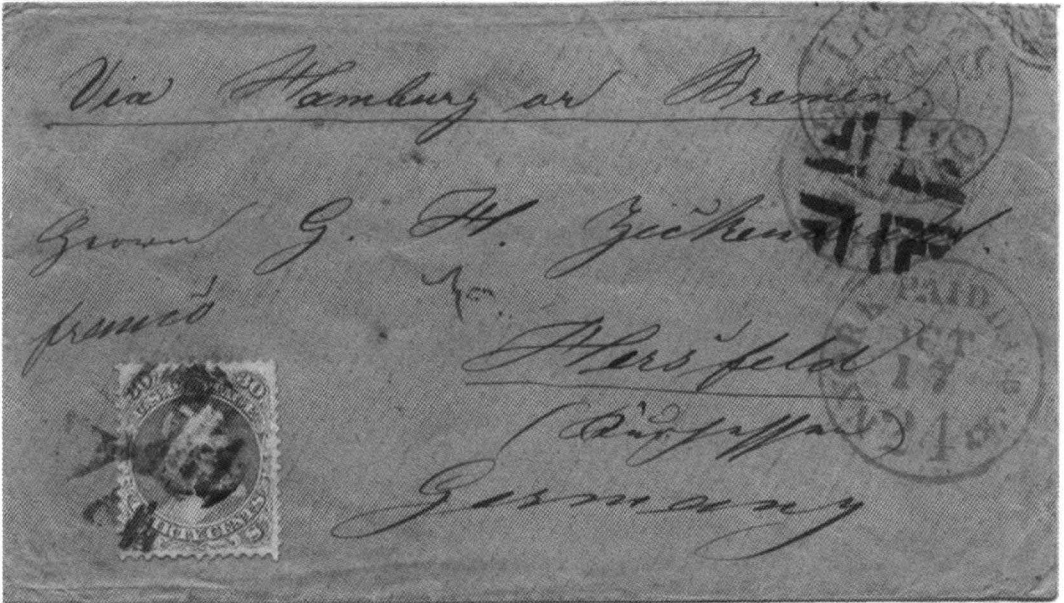 Via Hamburg or Bremen.
ST. LOUIS
MO
Herrn G. H.
franco
Hersfeld
(Kurhessen)
Germany
PAID
OCT
17
24
30 30
U.S. POSTAGE
THIRTY CENTS